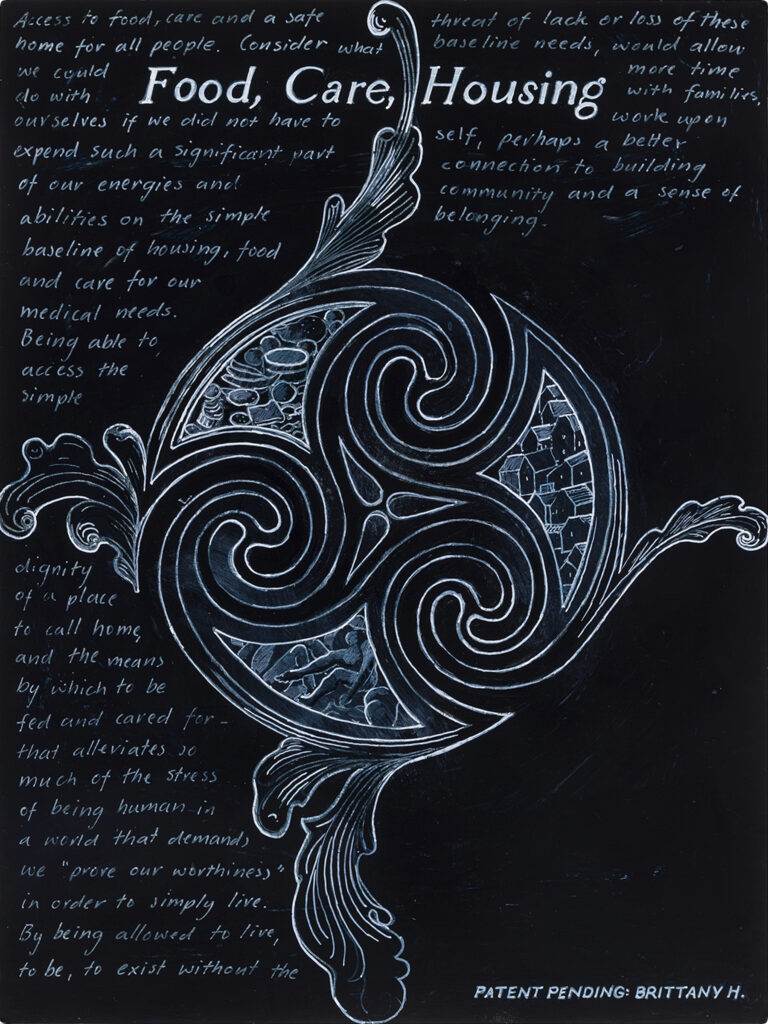 Food, Care, Housing
Access to food, care and a safe
home for all people. Consider what
we could
do with
ourselves if we did not have to
expend such a significant part
of our energies and
abilities on the simple
baseline of housing, food
and care for our
medical needs.
Being able to
access the
simple
dignity
of a place
to call home,
and the means
by which to be
fed and cared for -
that alleviates so
much of the stress
of being human in
a world that demands
we "prove our worthiness"
in order to simply live.
By being allowed to live,
to be, to exist without the
threat of lack or loss of these
baseline needs, would allow
more time
with families,
work upon
self, perhaps a better
connection to building
community and a sense of
belonging.
PATENT PENDING: BRITTANY H.